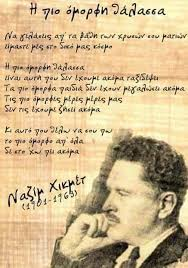 Η πιο όμορφη θάλασσα
Να γελάσεις απ' τα βάθη των χρυσών σου ματιών
είμαστε μες στο δικό μας κόσμο
Η πιο όμορφη θάλασσα
είναι αυτή που δεν έχουμε ακόμα ταξιδέψει
Τα πιο όμορφα παιδιά δεν έχουν μεγαλώσει ακόμα
Τις πιο όμορφες μέρες μας
δεν τις έχουμε ζήσει ακόμα
Κι αυτό που θέλω να σου πω
το πιο όμορφο απ' όλα
δε στο 'χω πει ακόμα
Ναζίμ Χικμέτ
(1901-1963)